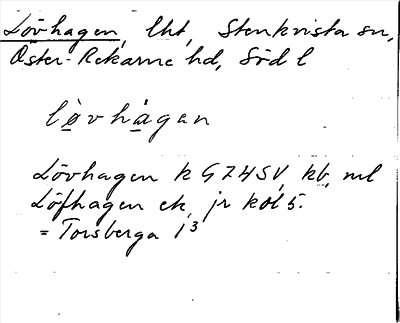 Lövhagen, lht, Stenkvista sn,
Öster-Rekarne hd, Söd l
lø̀vhàgan
Lövhagen k GZ4SV, kb, ml
Löfhagen ek, jr kol 5.
= Torsberga 1³